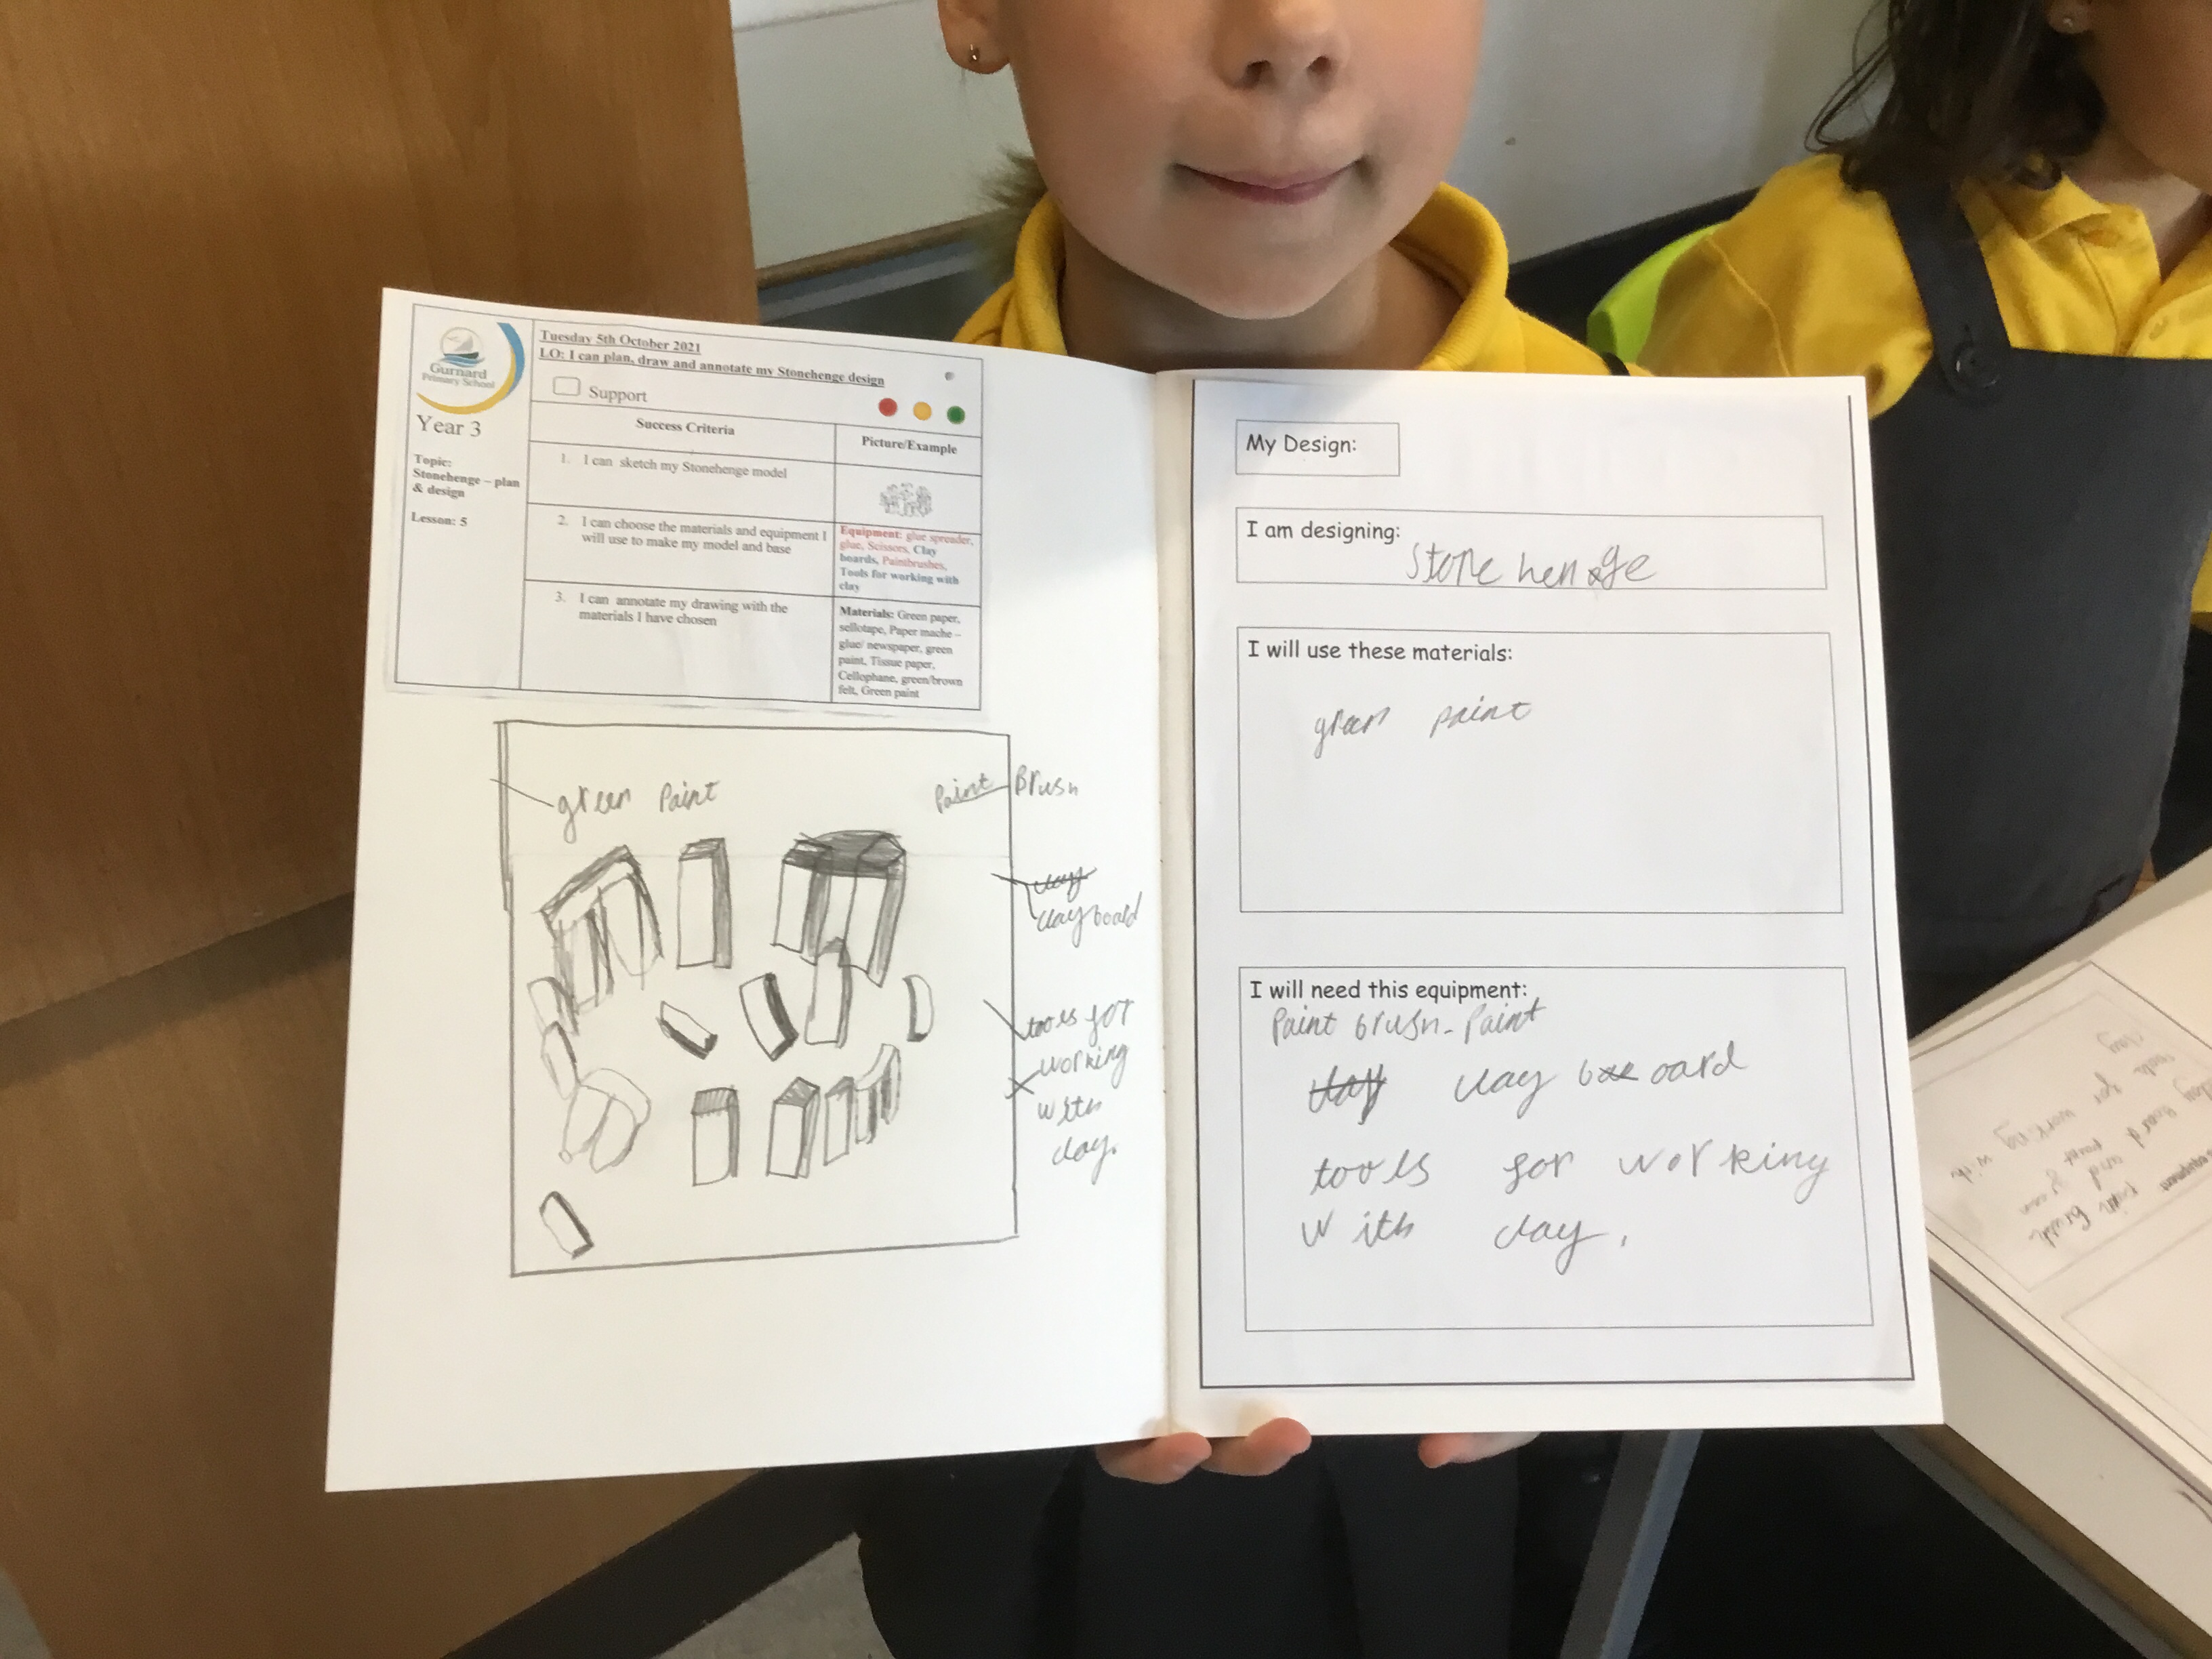 Gurnard
Primary School
Year 3
Topic:
Stonehenge – plan
& design
Lesson: 5
Tuesday 5th October 2021
LO: I can plan, draw and annotate my Stonehenge design
Support
Success Criteria
Picture/Example
1. I can sketch my Stonehenge model
2. I can choose the materials and equipment I
will use to make my model and base
Equipment: glue spreader,
glue, Scissors, Clay
boards, Paintbrushes,
Tools for working with
clay
3. I can annotate my drawing with the
materials I have chosen
Materials: Green paper,
sellotape, Paper mache –
glue/ newspaper, green
paint, Tissue paper,
Cellophane, green/brown
felt, Green paint
green Paint
Paint Brush
clay
clay board
tools for
working
with
clay.
My Design:
I am designing:
Stone henge
I will use these materials:
green paint
I will need this equipment:
Paint brush - Paint
clay board
tools for working
with clay.